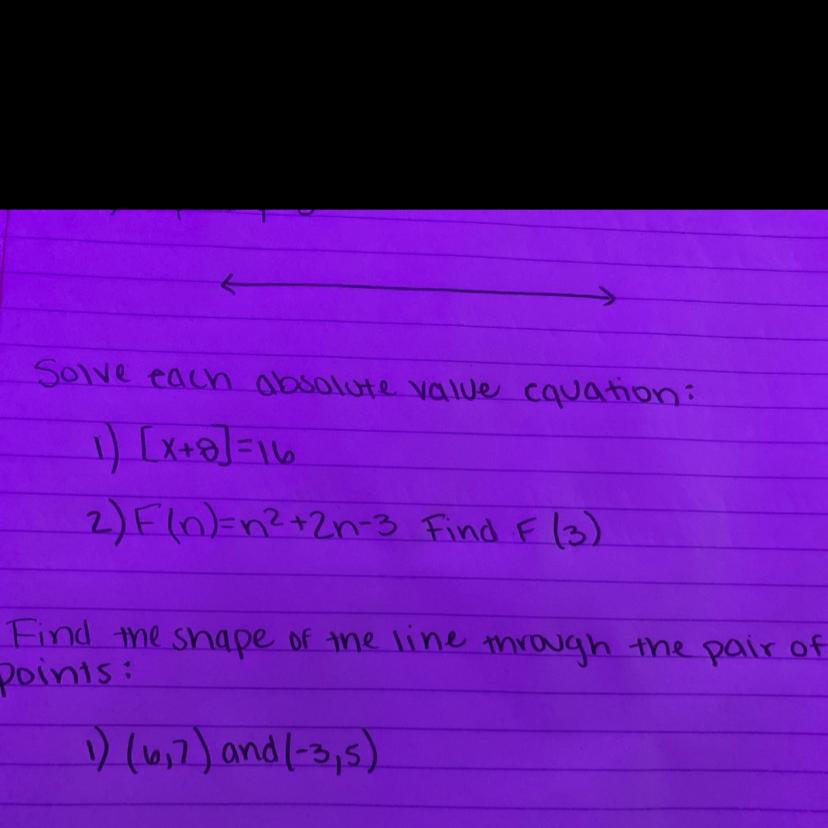 Solve each absolute value equation:
1) [x+8]=16
2) F(n)=n²+2n-3 Find F (3)
Find the shape of the line through the pair of
points:
1) (6,7) and (-3,5)